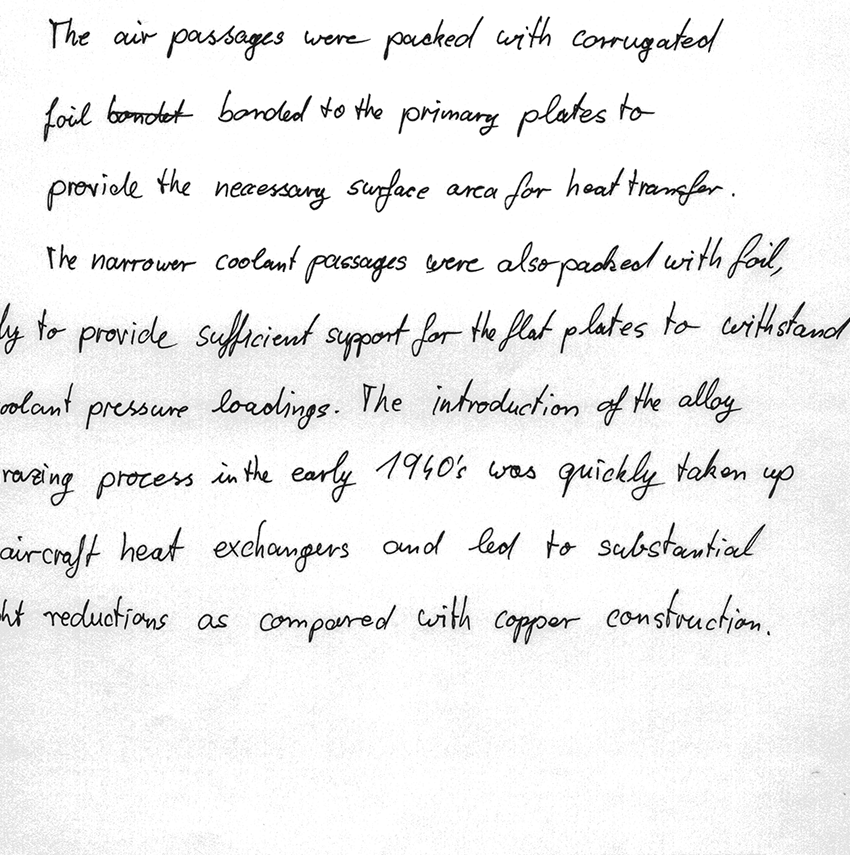 The air passages were packed with corrugated
foil bondet bonded to the primary plates to
provide the necessary surface area for heat transfer.
The narrower coolant passages were also packed with foil,
ly to provide sufficient support for the flat plates to withstand
oolant pressure loadings. The introduction of the alloy
razing process in the early 1940's was quickly taken up
aircraft heat exchangers and led to substantial
ht reductions as compared with copper construction.